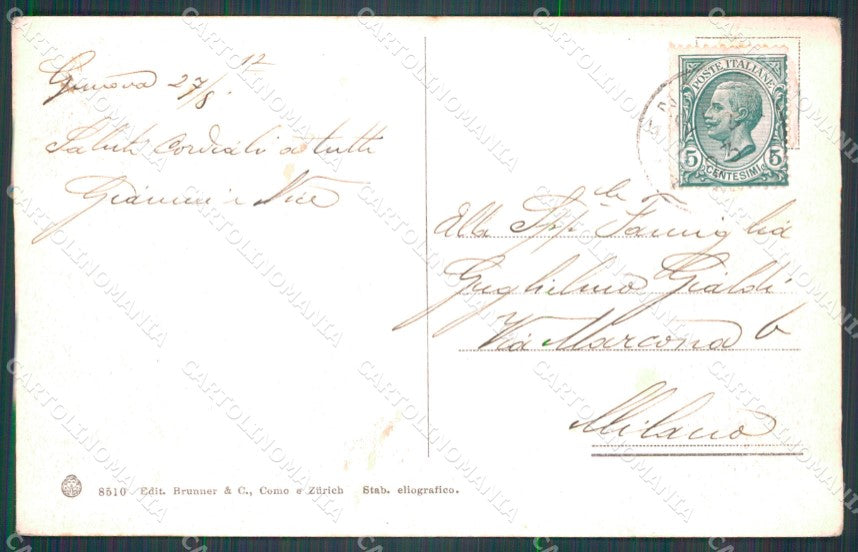 Genova 27/8 12
Saluti cordiali a tutti
Gianni e Nice
POSTE ITALIANE
5 5
CENTESIMI
Alla Spp.le Famiglia
Guglielmo Gialdi
Via Marcona 6
Milano
8510 Edit. Brunner & C., Como e Zürich Stab. eliografico.
CARTOLINOMANIA